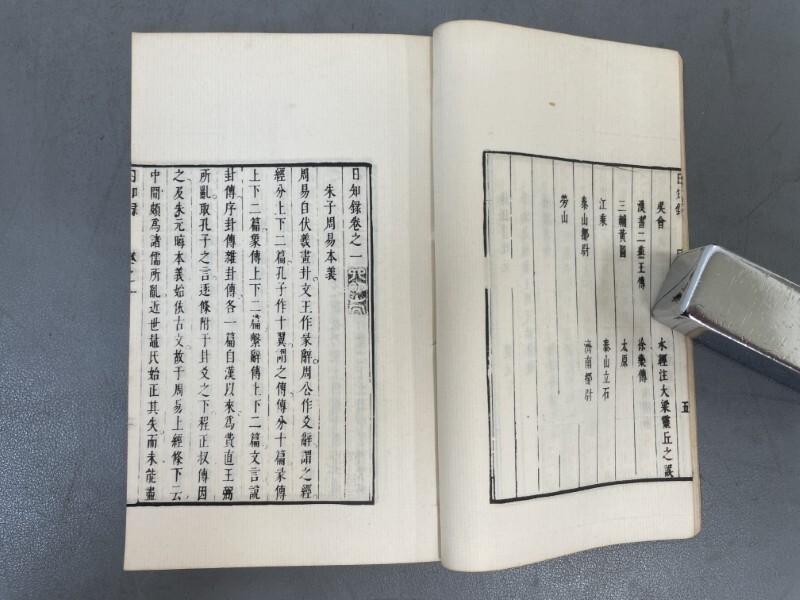 日知錄
五
吳會
水經注大梁靈丘之誤
漢書二燕王傳
徐樂傳
三輔黃圖
太原
江乘
泰山立石
泰山都尉
濟南都尉
勞山
日知錄卷之一
朱子周易本義
周易自伏羲畫卦文王作彖辭周公作爻辭謂之經
經分上下二篇孔子作十翼謂之傳傳分十篇彖傳
上下二篇象傳上下二篇繫辭傳上下二篇文言說
卦傳序卦傳雜卦傳各一篇自漢以來爲費直王弼
所亂取孔子之言逐條附于卦爻之下程正叔傳因
之及朱元晦本義始依古文故于周易上經條下云
中閒頗爲諸儒所亂近世晁氏始正其失而未能盡
日知錄
卷之一